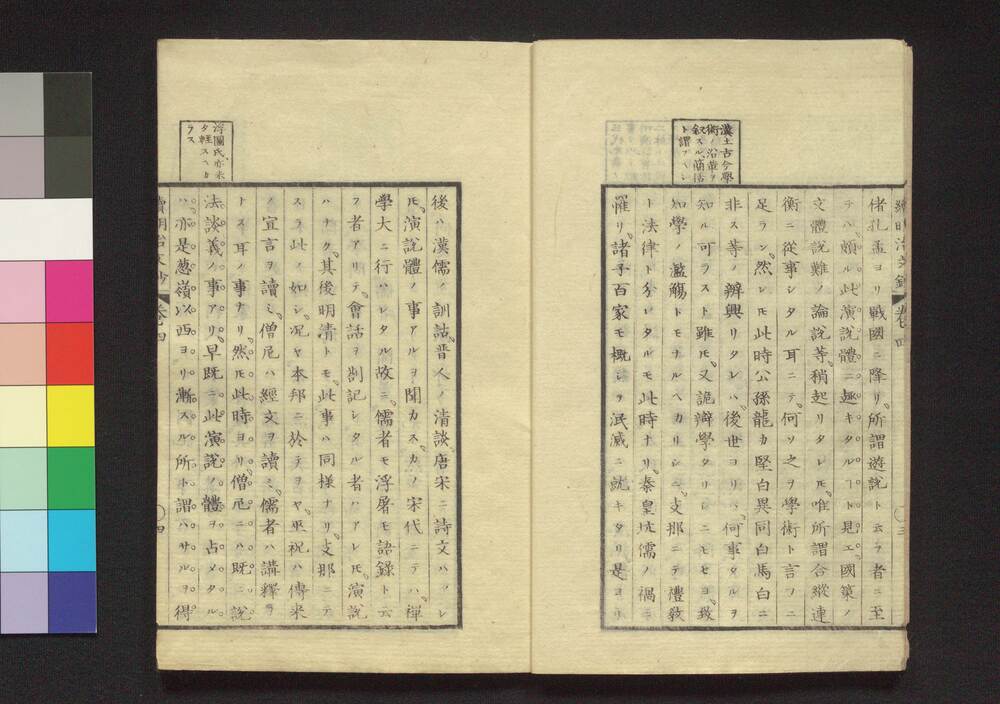 漢土古今學
術ノ沿革ヲ
叙スル簡括
ト謂フヘシ
續明治文鈔 卷四
○三
偖孔孟ヨリ戰國ニ降リ所謂遊説ト云フ者ニ至
テハ頗ル此演説體ニ趣キタルヿト見エ國策ノ
文體説難ノ論説等稍起リタレ𪜈唯所謂合縱連
衡ニ從事シタル耳ニテ何ソ之ヲ學術ト言フニ
足ラン然レ𪜈此時公孫龍カ堅白異同白馬白ニ
非ス等ノ辨興リタレハ後世ヨリハ何事タルヲ
知ル可ラスト雖𪜈又詭辯學タリシニモセヨ致
知學ノ濫觴トモナルヘカリシニ支那ニテ禮敎
ト法律ト分レタルモ此時ナリ秦皇坑儒ノ禍ニ
罹リ諸子百家モ概シテ泯滅ニ就キタリ是ヨリ
浮圖氏亦未
タ輕スヘカ
ラス
後ハ漢儒ノ訓詁晋人ノ清談唐宋ニ詩文ハアレ
𪜈演説體ノ事アルヲ聞カスカノ宋代ニテハ禪
學大ニ行ハレタル故ニ儒者モ浮屠モ語録ト云
フ者アリテ會話ヲ剳記シタル者ハアレ𪜈演説
ハナク其後明清トモ此事ハ同様ナリ支那ニテ
スラ此ノ如シ况ヤ本邦ニ於テヲヤ巫祝ハ傳來
ノ宣言ヲ讀ミ僧尼ハ經文ヲ讀ミ儒者ハ講釋ヲ
トス耳ノ事ナリ然𪜈此時ヨリ僧尼ニハ既ニ説
法談義ノ事アリ早既ニ此演説ノ體ヲ占メタル
ハ亦是葱嶺以西ヨリ漸スル所ト謂ハサルヲ得
續明治文鈔 卷四
○四